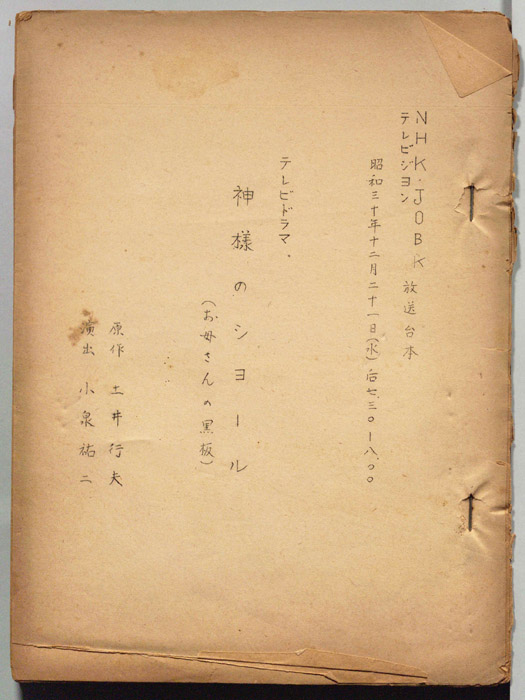 NHK・JOBK 放送台本
テレビジヨン
昭和三十年十二月二十一日(水)后七、三〇ー八、〇〇
テレビドラマ、
神様のショール
(お母さんの黒板)
原作 土井行夫
演出 小泉祐二